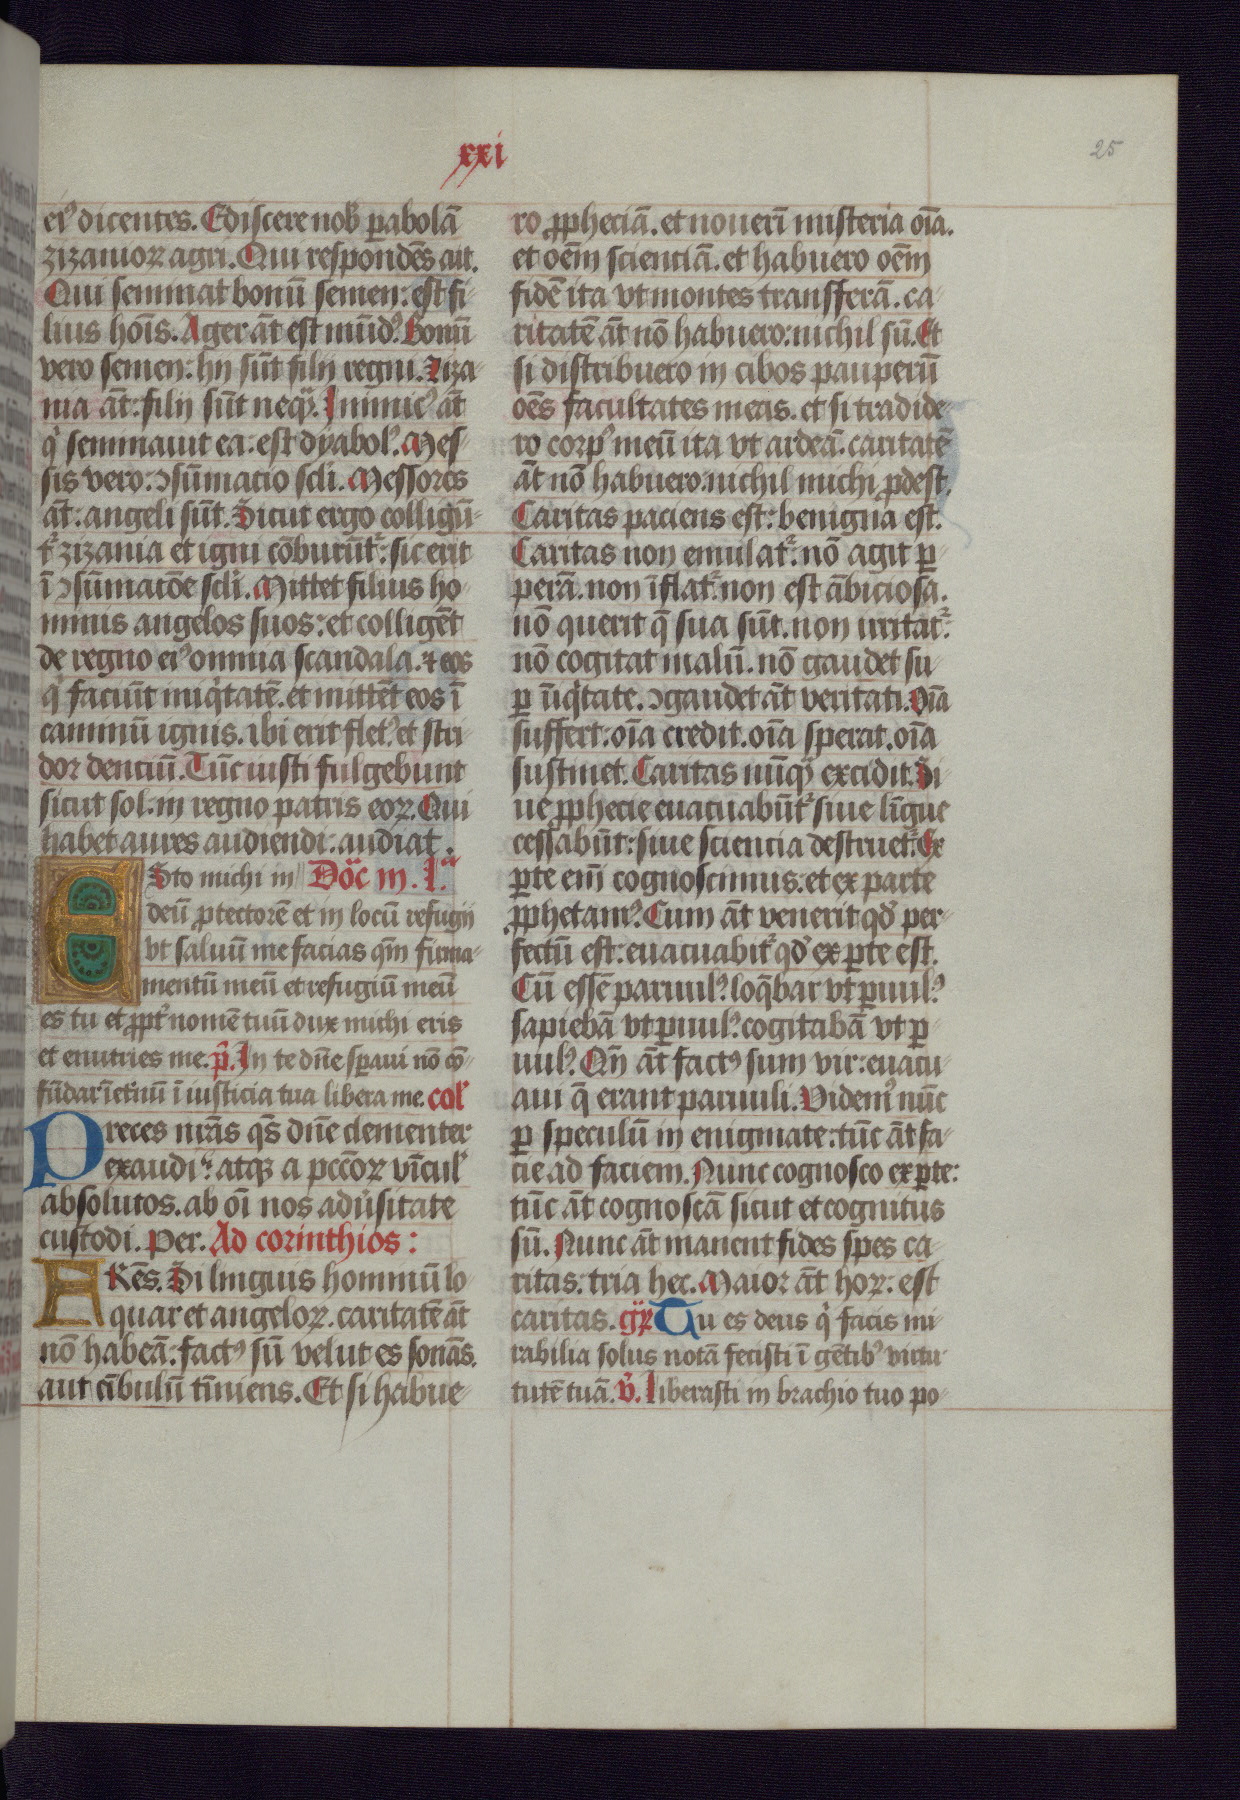 xxi
25
eiꝰ dicentes. Edissere nob̄ ꝑabolā
zizanioꝝ agri. Qui respondēs ait.
Qui seminat bonū semen: est fi-
lius hoīs. Ager āt est mūdꝰ. Bonū
vero semen: hij sūt filij regni. Ziza-
nia āt: filij sūt neqͣꝫ. Inimicꝰ āt
q̇ seminauit ea: est dyabolꝰ. Mes-
sis vero: ↄsūmacio scli. Messores
āt: angeli sūt. Sicut ergo colligūt-
r̉ zizania et igni cōburūt̉: sic erit
ī ↄsūmacōe scli. Mittet filius ho-
minis angelos suos: et colligēt
de regno eiꝰ omnia scandala. ⁊ eos
q̇ faciūt iniq̇tatē. et mittēt eos ī
caminū ignis. ibi erit fletꝰ. et stri-
dor denciū. Tūc iusti fulgebunt
sicut sol. in regno patris eoꝝ. Qui
habet aures audiendi: audiat.
Esto michi in Dōc in. Lᵃ
deū ꝓtectorē et in locū refugij
vt saluū me facias qm̄ firma-
mentū meū et refugiū meū
es tu et ꝓpt̉ nomē tuū dux michi eris
et enutries me. p̄. In te dn̄e sꝑaui nō cō-
fūdar īet̉nū ī iusticia tua libera me. col̉
Preces nr̄as qs̄ dn̄e clementer
exaudi: atqꝫ a pccōꝝ vīcul̉
absolutos. ab oī nos adūsitate
custodi. Per. Ad corinthios:
FRēs. Si linguis hominū lo-
quar et angeloꝝ. caritatē āt
nō habeā: factꝰ sū velut es sonās.
aut cībulū tīniens. Et si habue-
ro ꝓpheciā. et nouerī misteria oīa.
et oēm scienciā. et habuero oēm
fidē ita vt montes transferā. ca-
ritatē āt nō habuero: nichil sū. Et
si distribuero in cibos pauperū
oēs facultates meas. et si tradide-
ro corpꝰ meū ita vt ardeā. caritatē
āt nō habuero: nichil michi ꝓdest.
Caritas paciens est: benigna est.
Caritas non emulat̉: nō agit ꝑ-
perā. non īflat̉. non est ābiciosa.
nō querit q̄ sua sūt. non irritat̉.
nō cogitat malū. nō gaudet su-
ꝑ īiq̇tate. ↄgaudet āt veritati. Oīa
suffert: oīa credit. oīa sperat. oīa
sustinet. Caritas nūqͣꝫ excidit. Si-
ue ꝓphecie euacuabūt̉ siue līgue
cessabūt: siue sciencia destruet̉. Ex
ꝑte em̄ cognoscimus: et ex parte
ꝓphetamꝰ. Cum āt venerit qd̓ per-
fectū est: euacuabit̉ qd̓ ex ꝑte est.
Cū essē paruulꝰ. loq̄bar vt ꝑuulꝰ.
sapiebā vt ꝑuulꝰ. cogitabā vt ꝑ-
uulꝰ. Qn̄ āt factꝰ sum vir: euacu-
aui q̄ erant paruuli. Videmꝰ nūc
ꝑ speculū in enigmate: tūc āt fa-
cie ad faciem. Nunc cognosco ex ꝑte:
tūc āt cognoscā sicut et cognitus
sū. Nunc āt manent fides spes ca-
ritas: tria hec. Maior āt hoꝝ: est
caritas. gr̄ Tu es deus q̇ facis mi-
rabilia solus notā fecisti ī gētibꝰ virtu-
tutē tuā. v̄. Liberasti in brachio tuo po-